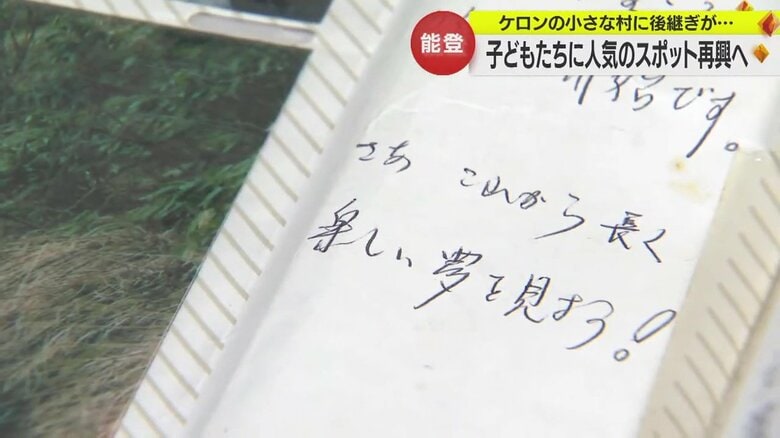 ケロンの小さな村に後継ぎが…
能登
子どもたちに人気のスポット再興へ
です。
さあ これから 長く
楽しい 夢を見よう!